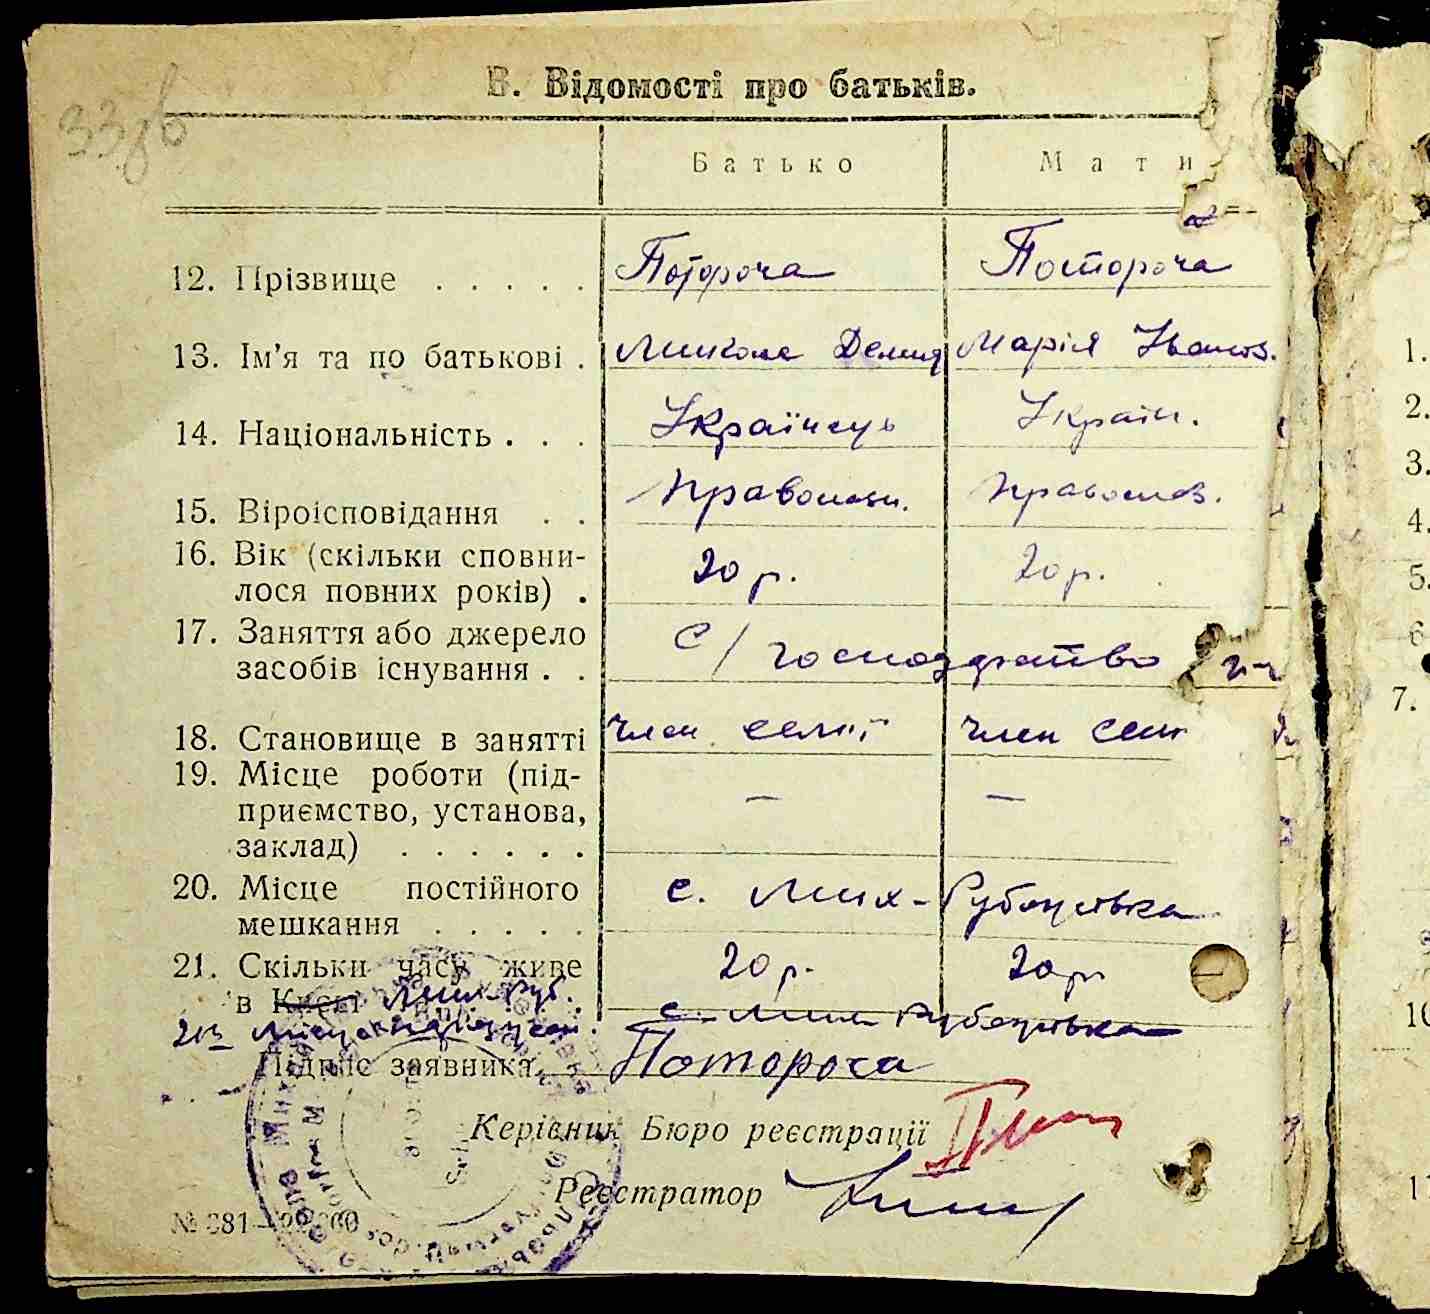 33зв
В. Відомості про батьків.
Батько Мати
12. Прізвище . . . . . Потороча Потороча
13. Ім'я та по батькові . Микола Демид Марія Іванов.
14. Національність . . . Українець Україн.
15. Віроісповідання . . Православн. Православ.
16. Вік (скільки сповни-
лося повних років) . 20 р. 20 р.
17. Заняття або джерело
засобів існування . . С/господарство
18. Становище в занятті член семії член семї
19. Місце роботи (під-
приємство, установа,
заклад) . . . . . . — —
20. Місце постійного
мешкання . . . . . с. Мих-Рубанівка
21. Скільки часу живе 20 р. 20 р.
в Києві Мих-Руб. с. Мих Рубанівка
Підпис заявника Потороча
Керівник Бюро реєстрації
Реєстратор
№ 381—
1.
2.
3.
4.
5.
6
7.